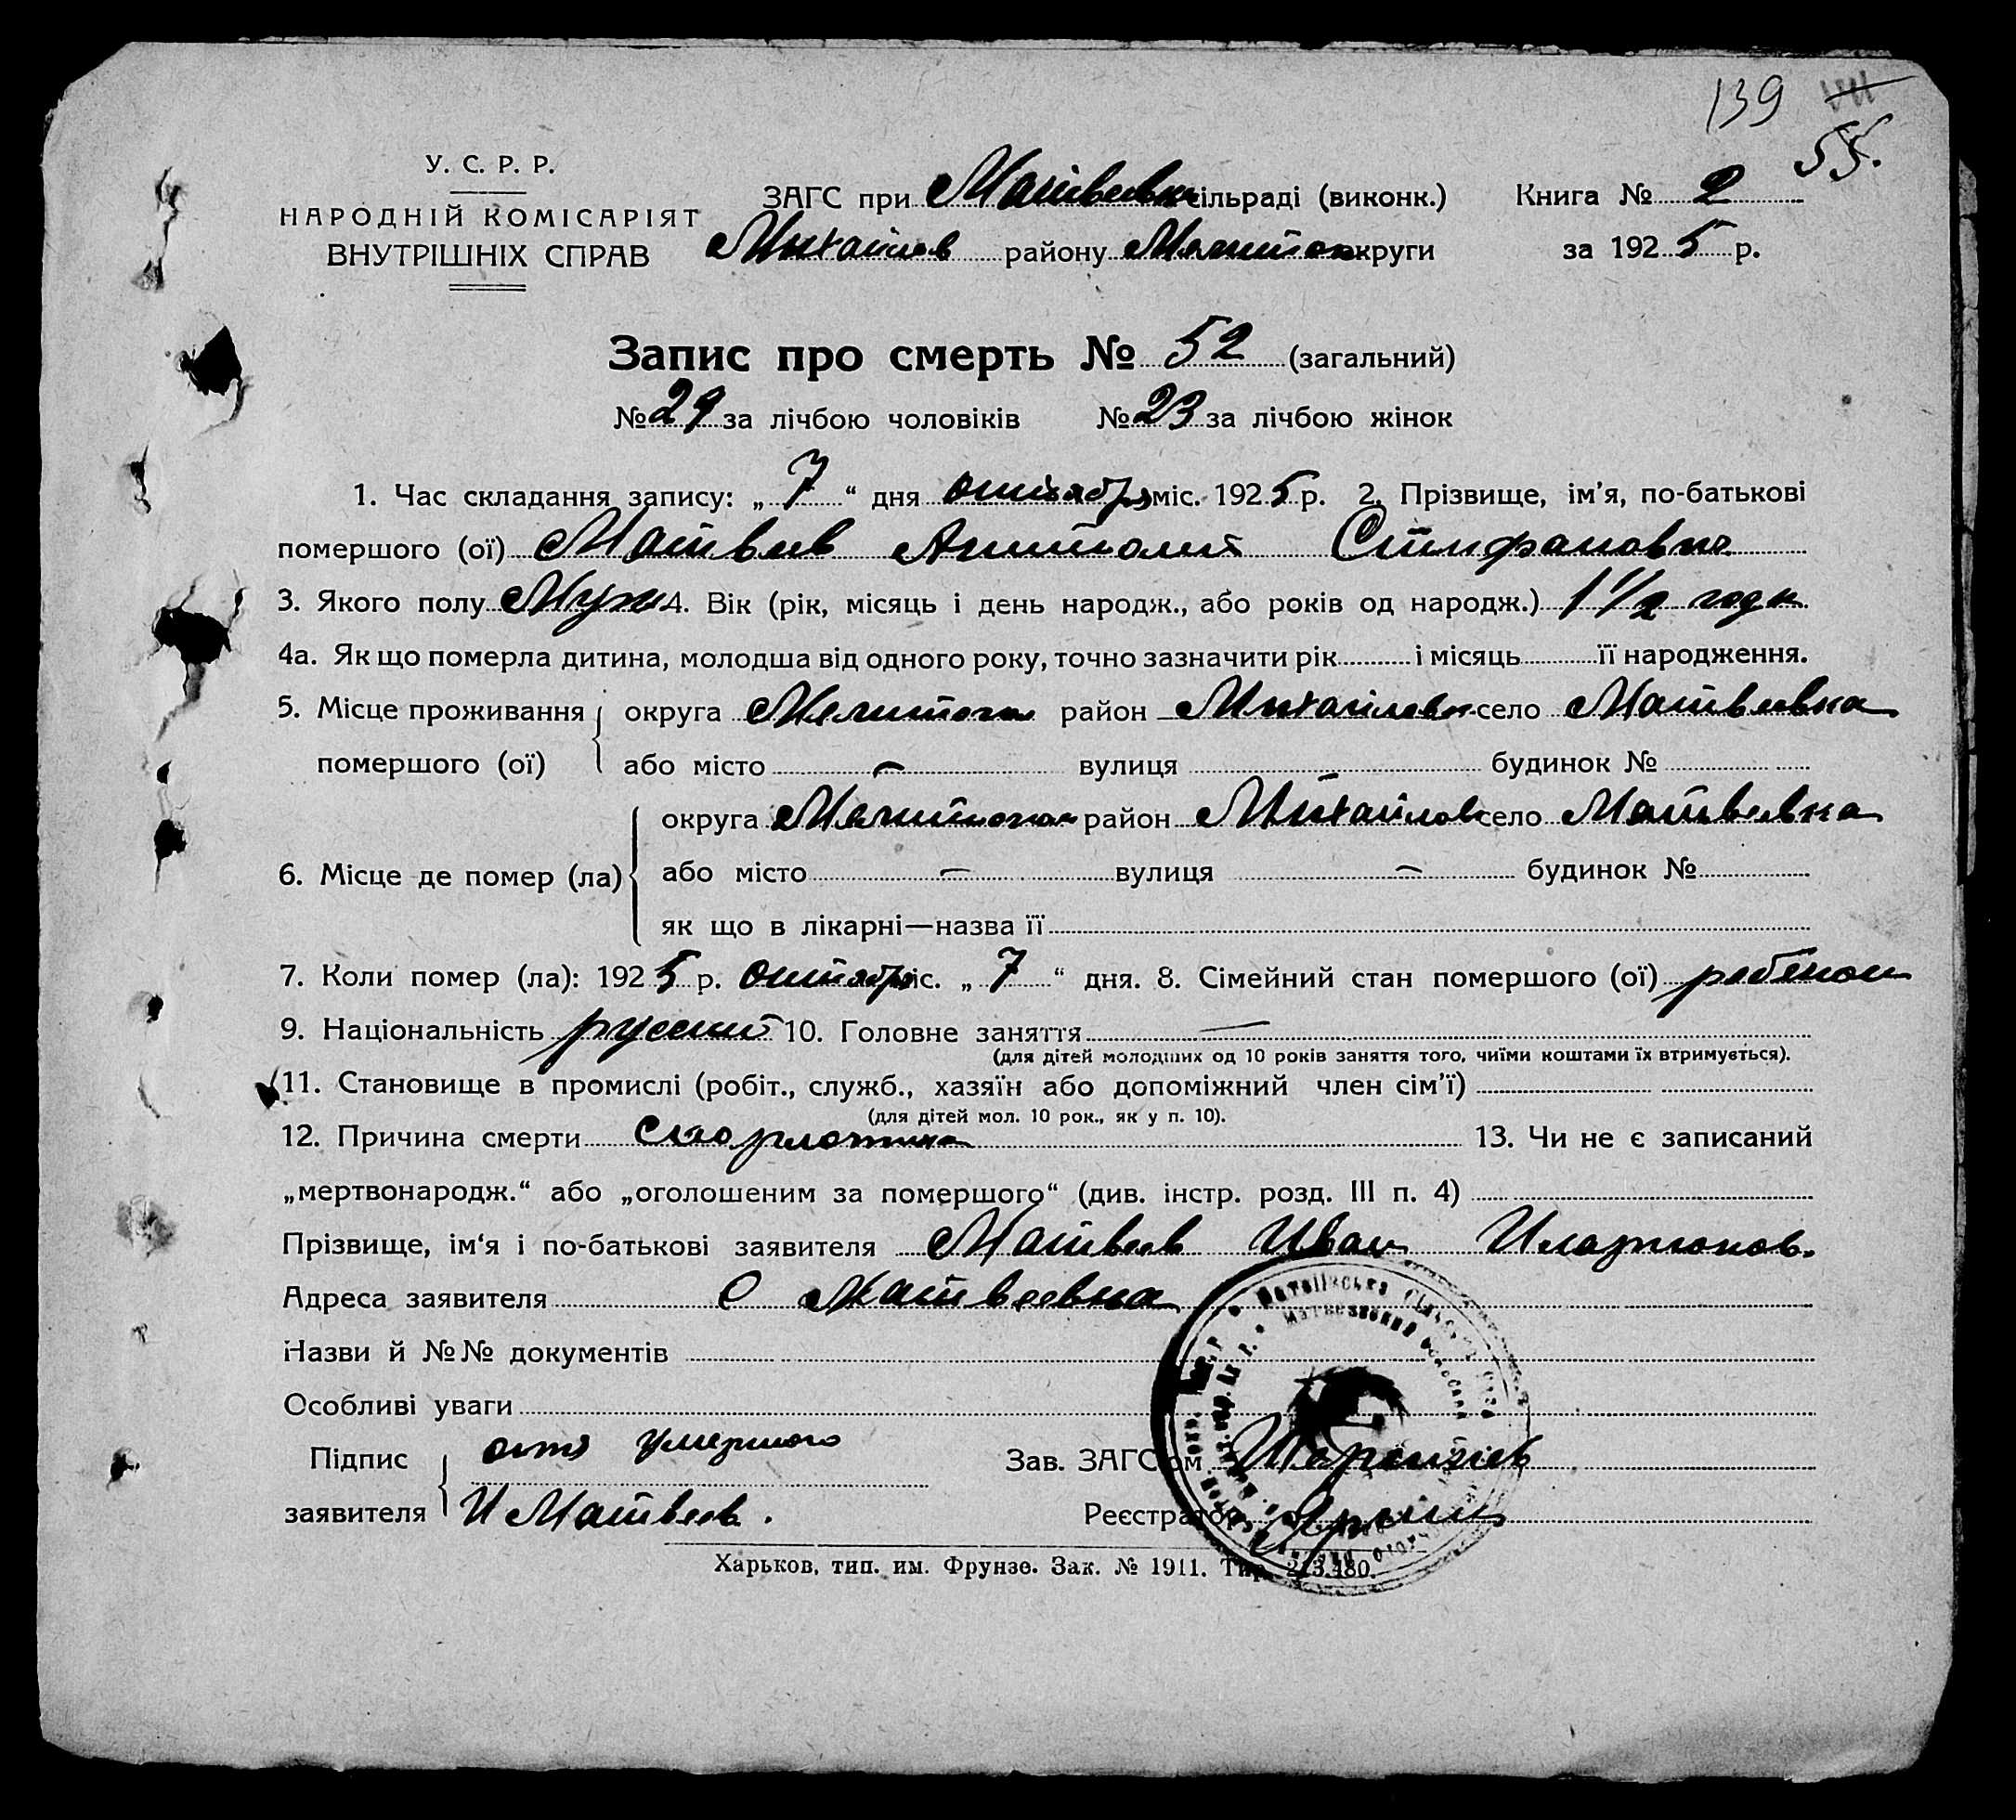 139
55.
У. С. Р. Р.
НАРОДНІЙ КОМІСАРІЯТ
ВНУТРІШНІХ СПРАВ
ЗАГС при Матвеевк сільраді (виконк.) Книга № 2
Михайлов району Мелитоп округи за 1925 р.
Запис про смерть № 52 (загальний)
№ 29 за лічбою чоловіків № 23 за лічбою жінок
1. Час складання запису: „ 7 “ дня октября міс. 1925 р. 2. Прізвище, ім'я, по-батькові
помершого (ої) Матвеев Анатолий Стефанович
3. Якого полу Муж 4. Вік (рік, місяць і день народж., або років од народж.) 1 1/2 года
4а. Як що померла дитина, молодша від одного року, точно зазначити рік і місяць її народження.
5. Місце проживання округа Мелитопол район Михайловк село Матвеевка
помершого (ої) або місто — вулиця будинок №
округа Мелитопол район Михайлов село Матвеевка
6. Місце де помер (ла) або місто — вулиця — будинок №
як що в лікарні—назва її
7. Коли помер (ла): 1925 р. октября міс. „ 7 “ дня. 8. Сімейний стан помершого (ої) ребенок
9. Національність русский 10. Головне заняття —
(для дітей молодших од 10 років заняття того, чиїми коштами їх втримується).
11. Становище в промислі (робіт., служб., хазяїн або допоміжний член сім'ї)
(для дітей мол. 10 рок., як у п. 10).
12. Причина смерти скарлатина 13. Чи не є записаний
„мертвонародж.“ або „оголошеним за помершого“ (див. інстр. розд. III п. 4)
Прізвище, ім'я і по-батькові заявителя Матвеев Иван Иларионов.
Адреса заявителя с Матвеевка
Назви й №№ документів
Особливі уваги
Підпис умершого Зав. ЗАГС'ом
заявителя И Матвеев. Реєстратор
Харьков, тип. им. Фрунзе. Зак. № 1911. Тир. 213.480.